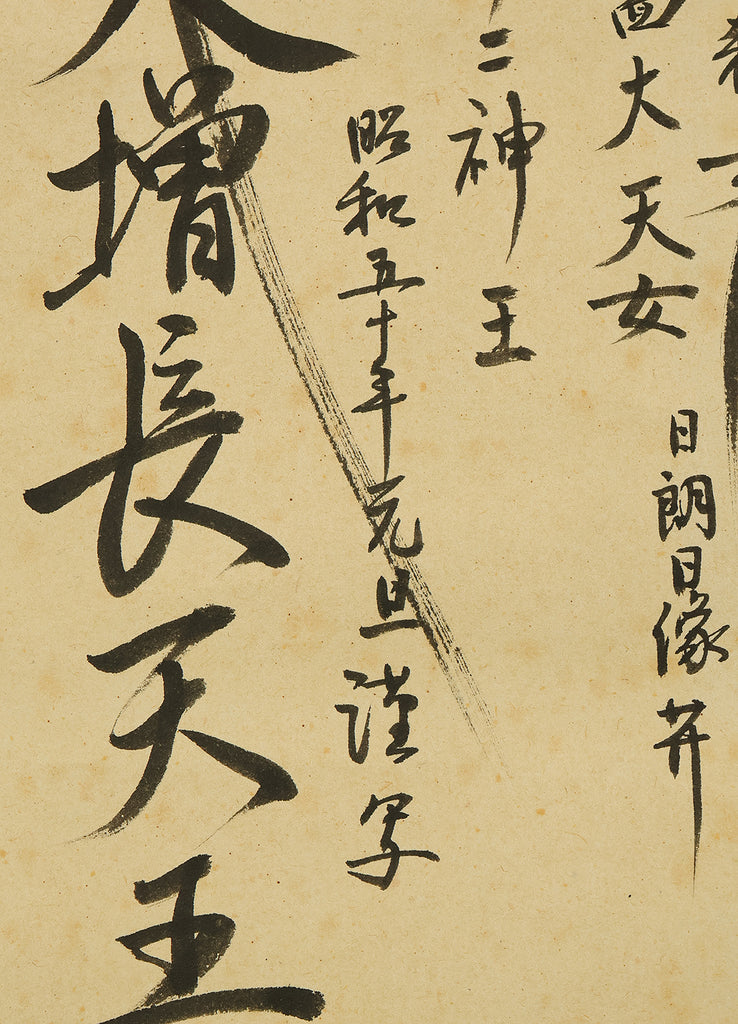 日朗日像𦬇
面大天女
二神王
昭和五十年元旦謹写
大増長天王